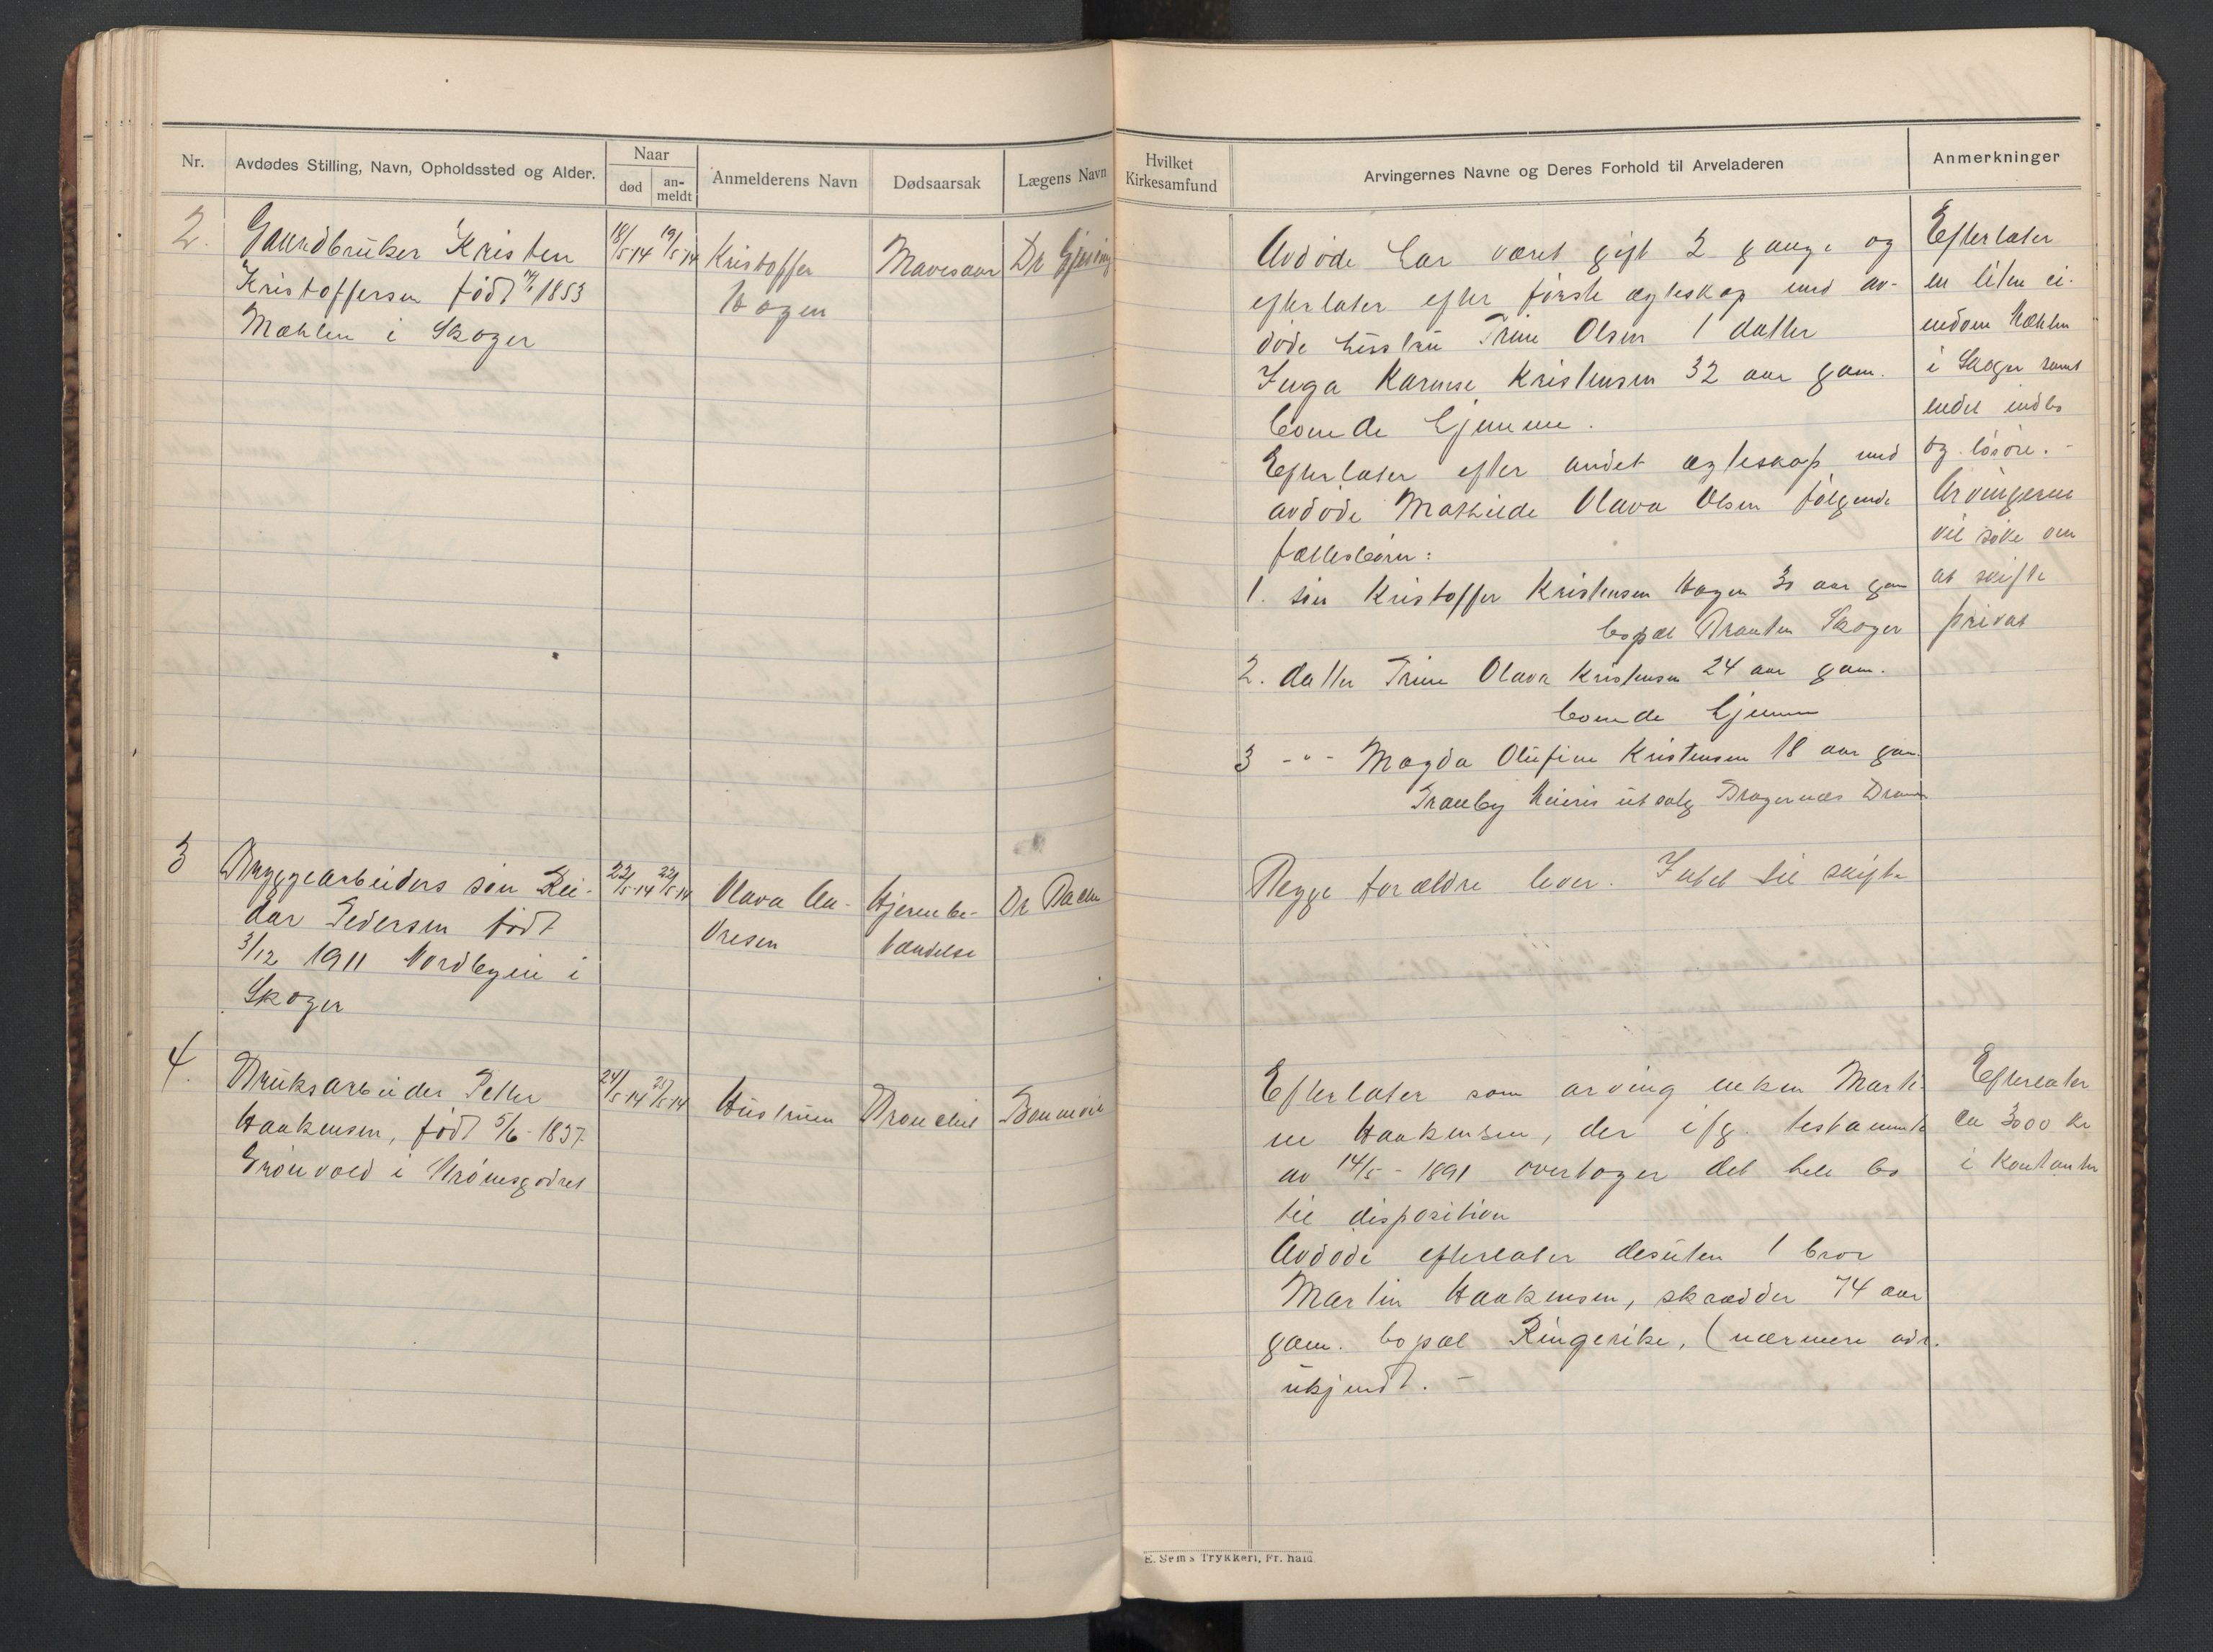 Nr.
Avdødes Stilling, Navn, Opholdssted og Alder.
Naar
død
an-
meldt
Anmelderens Navn
Dødsaarsak
Lægens Navn
2.
Gaardbruker Kristen
Kristoffersen født 1853
Mæhlen i Skoger
18/5-14
19/5-14
Kristoffer
Hagen
Mavesaar
Dr Gjessing
3
Bryggearbeiders søn Rei-
dar Pedersen født
3/12 1911 Nordbyen i
Skoger
22/5-14
22/5-14
Olava An-
dresen
Hjernebe-
tændelse
Dr
4.
Bruksarbeider Petter
Haakensen, født 5/6-1837
Grønvold i
24/5-14
25/5-14
Hustruen
Bronchit
Bonnevie
Hvilket
Kirkesamfund
Arvingernes Navne og Deres Forhold til Arveladeren
Anmerkninger
Avdøde har været gift 2 gange og
efterlater efter første egteskap med av-
døde hustru Trine Olsen 1 datter
Inga Karense Kristensen 32 aar gam.
boende hjemme.
Efterlater efter andet egteskap med
avdøde Mathilde Olava Olsen følgende
fællesbørn:
1. søn Kristoffer Kristensen Hagen 30 aar gam
bopæl Braaten Skoger
2. datter Trine Olava Kristensen 24 aar gam.
boende hjemme
3 -"- Magda Olufine Kristensen 18 aar gam.
Tranby Meieris utsalg Bragernæs Dramm
Efterlater
en liten ei-
endom Mæhlen
i Skoger samt
endel indbo
og løsøre. -
Arvingerne
vil søke om
at skifte
privat
Begge forældre lever. Intet til skifte
Efterlater som arving enken Marti-
ne Haakensen, der ifg. testamente
av 14/5-1891 overtager det hele bo
til disposition
Avdøde efterlater desuten 1 bror
Martin Haakensen, skrædder 74 aar
gam. bopæl Ringerike, (nærmere adr.
ukjendt. -
Efterlater
ca 3000 kr
i kontanter
E. Sem's Trykkeri, Fr. hald.